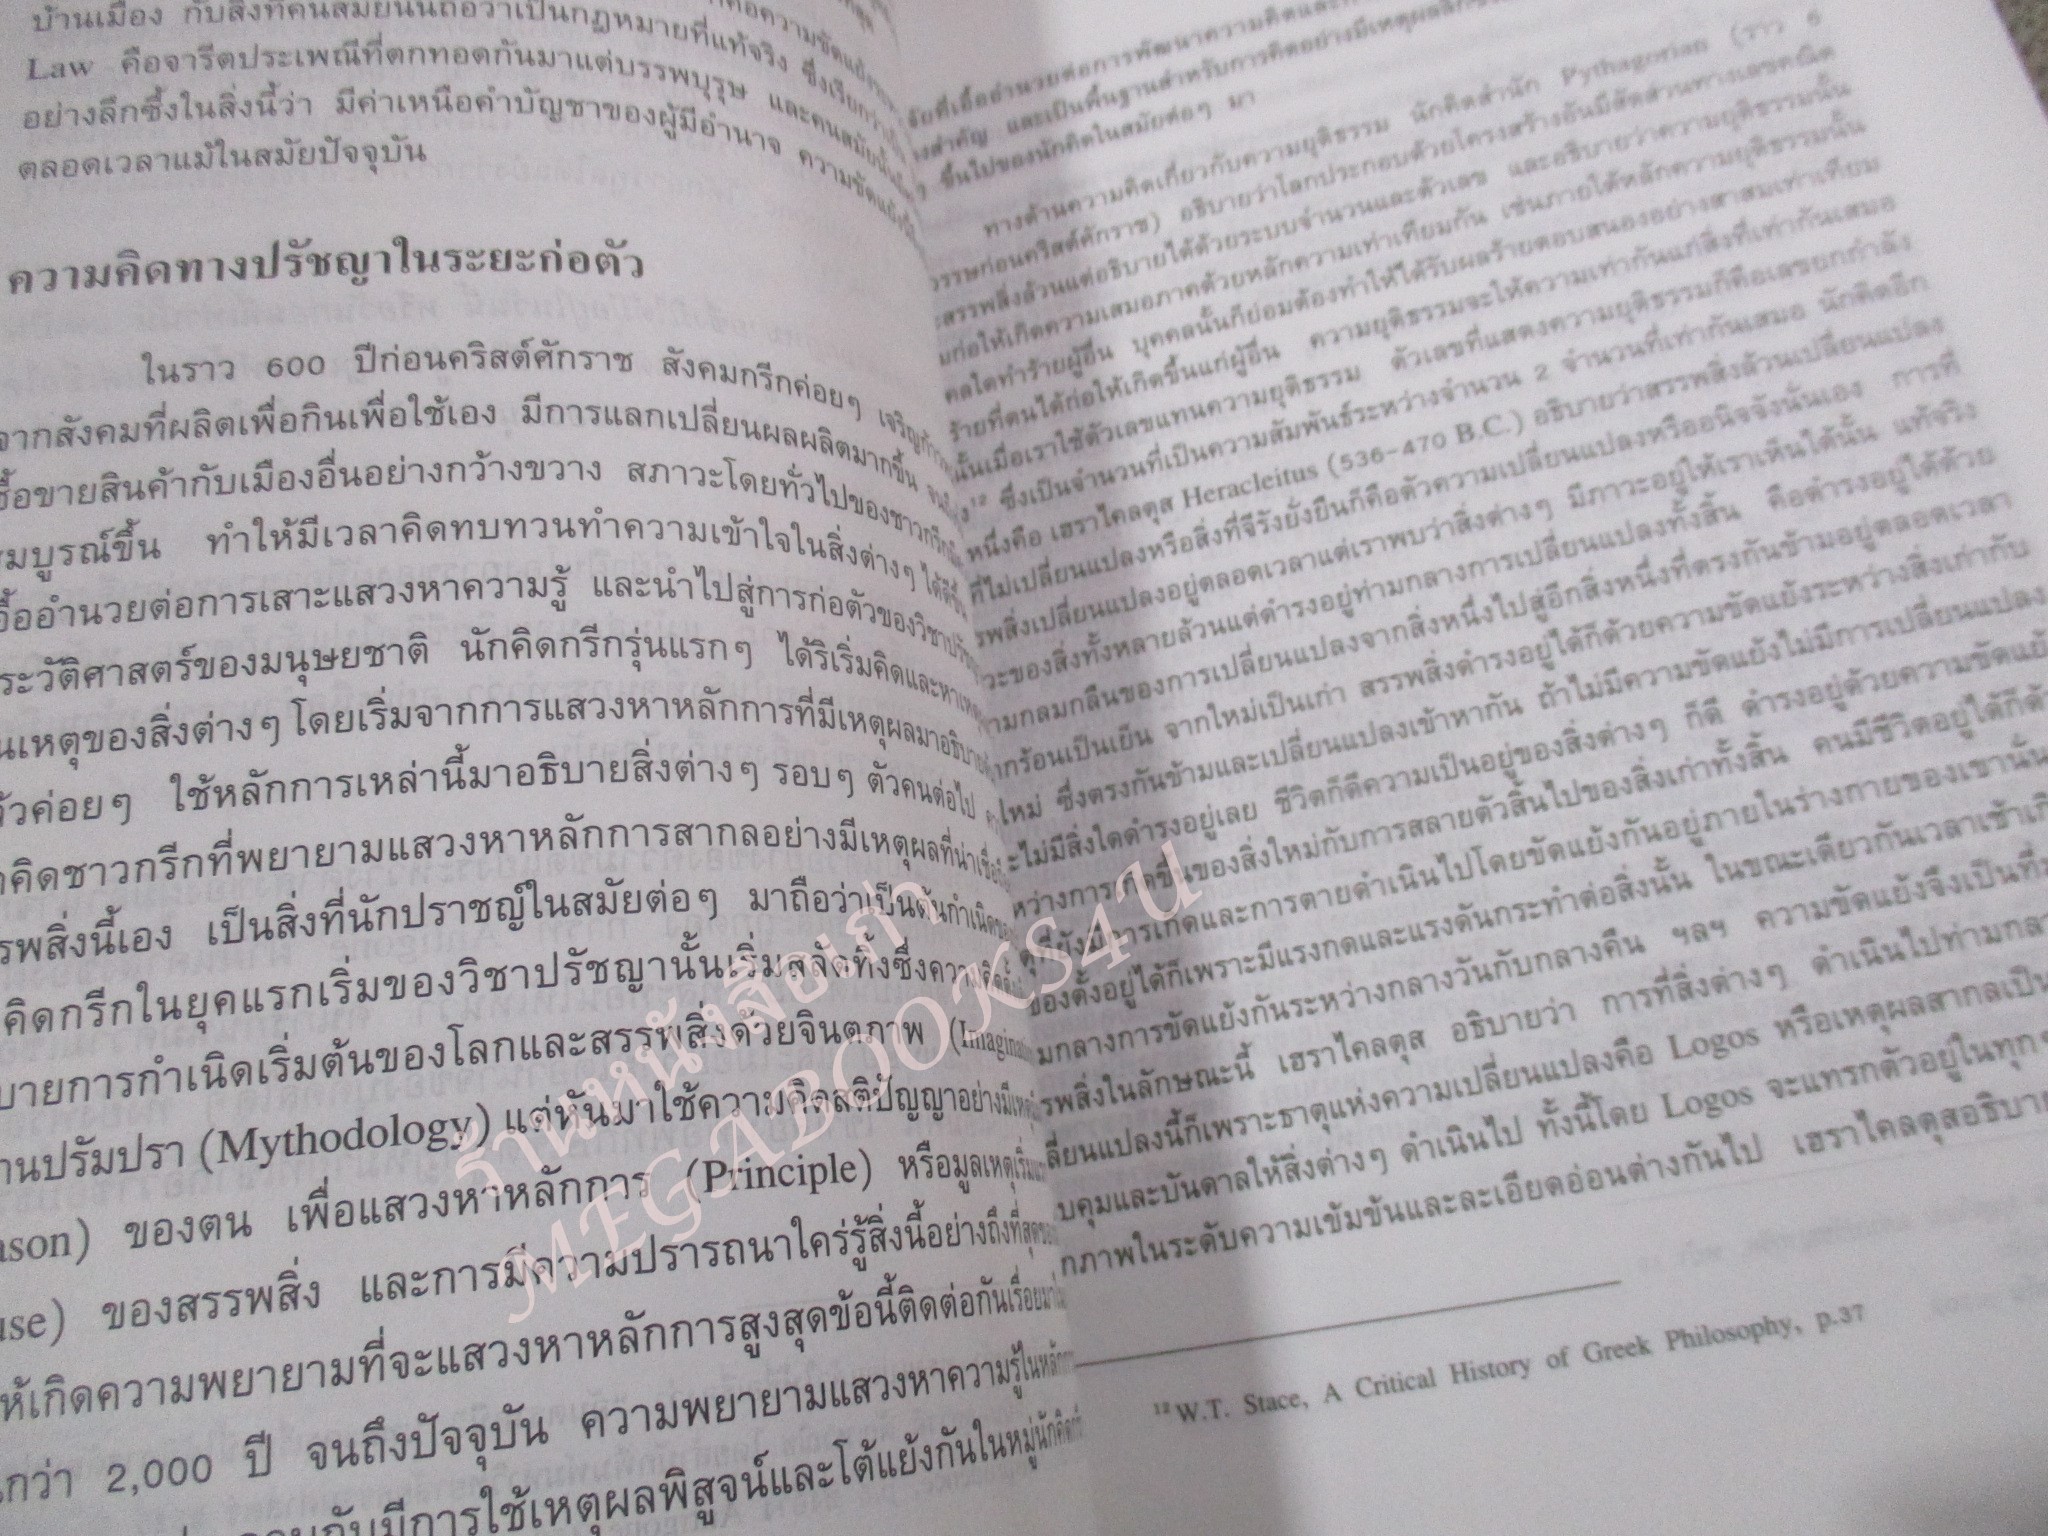 บ้านเมือง กับสิ่งที่คนสมัยนั้นถือว่าเป็นกฎหมายที่แท้จริง ซึ่งเรียกว่าเป็น
Law คือจารีตประเพณีที่ตกทอดกันมาแต่บรรพบุรุษ และคนสมัยนั้น
อย่างลึกซึ้งในสิ่งนี้ว่า มีค่าเหนือคำบัญชาของผู้มีอำนาจ ความขัดแย้งนี้
ตลอดเวลาแม้ในสมัยปัจจุบัน
ความคิดทางปรัชญาในระยะก่อตัว
ในราว 600 ปีก่อนคริสต์ศักราช สังคมกรีกค่อยๆ เจริญ
จากสังคมที่ผลิตเพื่อกินเพื่อใช้เอง มีการแลกเปลี่ยนผลผลิตมากขึ้น
ซื้อขายสินค้ากับเมืองอื่นอย่างกว้างขวาง สภาวะโดยทั่วไปของชาวกรีก
มบูรณ์ขึ้น ทำให้มีเวลาคิดทบทวนทำความเข้าใจในสิ่งต่างๆ ได้ดีขึ้น
เอื้ออำนวยต่อการเสาะแสวงหาความรู้ และนำไปสู่การก่อตัวของวิชา
ระวัติศาสตร์ของมนุษยชาติ นักคิดกรีกรุ่นแรกๆ ได้ริเริ่มคิดและหา
นเหตุของสิ่งต่างๆ โดยเริ่มจากการแสวงหาหลักการที่มีเหตุผลมาอธิบาย
ค่อยๆ ใช้หลักการเหล่านี้มาอธิบายสิ่งต่างๆ รอบๆ ตัวคนต่อไป
คิดชาวกรีกที่พยายามแสวงหาหลักการสากลอย่างมีเหตุผลที่น่าเชื่อ
รพสิ่งนี้เอง เป็นสิ่งที่นักปราชญ์ในสมัยต่อๆ มาถือว่าเป็นต้นกำเนิด
คิดกรีกในยุคแรกเริ่มของวิชาปรัชญานั้นเริ่มสลัดทิ้งซึ่งความคิด
บายการกำเนิดเริ่มต้นของโลกและสรรพสิ่งด้วยจินตภาพ (Imagination
านปรัมปรา (Mythodology) แต่หันมาใช้ความคิดสติปัญญาอย่างมีเหตุ
ason) ของตน เพื่อแสวงหาหลักการ (Principle) หรือมูลเหตุเริ่ม
use) ของสรรพสิ่ง และการมีความปรารถนาใคร่รู้สิ่งนี้อย่างถึงที่สุด
ห้เกิดความพยายามที่จะแสวงหาหลักการสูงสุดข้อนี้ติดต่อกันเรื่อยมา
กว่า 2,000 ปี จนถึงปัจจุบัน ความพยายามแสวงหาความรู้ในหลัก
มีการใช้เหตุผลพิสูจน์และโต้แย้งกันในหมู่นักคิด
ยที่เอื้ออำนวยต่อการพัฒนาความคิดและ
งสำคัญ และเป็นพื้นฐานสำหรับการคิดอย่างมีเหตุผล
ขึ้นไปของนักคิดในสมัยต่อๆ มา
ทางด้านความคิดเกี่ยวกับความยุติธรรม นักคิดสำนัก Pythagorian (ราว 6
วรรษก่อนคริสต์ศักราช) อธิบายว่าโลกประกอบด้วยโครงสร้างอันมีสัดส่วนทางเลขคณิต
สรรพสิ่งล้วนแต่อธิบายได้ด้วยระบบจำนวนและตัวเลข และอธิบายว่าความยุติธรรมนั้น
มก่อให้เกิดความเสมอภาคด้วยหลักความเท่าเทียมกัน เช่นภายใต้หลักความยุติธรรมนั้น
คลใดทำร้ายผู้อื่น บุคคลนั้นก็ย่อมต้องทำให้ได้รับผลร้ายตอบสนองอย่างสาสมเท่าเทียม
ร้ายที่ตนได้ก่อให้เกิดขึ้นแก่ผู้อื่น ความยุติธรรมจะให้ความเท่ากันแก่สิ่งที่เท่ากันเสมอ
นั้นเมื่อเราใช้ตัวเลขแทนความยุติธรรม ตัวเลขที่แสดงความยุติธรรมก็คือเลขยกกำลัง
ง¹² ซึ่งเป็นจำนวนที่เป็นความสัมพันธ์ระหว่างจำนวน 2 จำนวนที่เท่ากันเสมอ นักคิดอีก
หนึ่งคือ เฮราไคลตุส Heracleitus (536-470 B.C.) อธิบายว่าสรรพสิ่งล้วนเปลี่ยนแปลง
ที่ไม่เปลี่ยนแปลงหรือสิ่งที่จีรังยั่งยืนก็คือตัวความเปลี่ยนแปลงหรืออนิจจังนั่นเอง การที่
รพสิ่งเปลี่ยนแปลงอยู่ตลอดเวลาแต่เราพบว่าสิ่งต่างๆ มีภาวะอยู่ให้เราเห็นได้นั้น แท้จริง
วะของสิ่งทั้งหลายล้วนแต่ดำรงอยู่ท่ามกลางการเปลี่ยนแปลงทั้งสิ้น คือดำรงอยู่ได้ด้วย
ามกลมกลืนของการเปลี่ยนแปลงจากสิ่งหนึ่งไปสู่อีกสิ่งหนึ่งที่ตรงกันข้ามอยู่ตลอดเวลา
ากร้อนเป็นเย็น จากใหม่เป็นเก่า สรรพสิ่งดำรงอยู่ได้ก็ด้วยความขัดแย้งระหว่างสิ่งเก่ากับ
ใหม่ ซึ่งตรงกันข้ามและเปลี่ยนแปลงเข้าหากัน ถ้าไม่มีความขัดแย้งไม่มีการเปลี่ยนแปลง
ะไม่มีสิ่งใดดำรงอยู่เลย ชีวิตก็ดีความเป็นอยู่ของสิ่งต่างๆ ก็ดี ดำรงอยู่ด้วยความขัดแย้
หว่างการเกิดขึ้นของสิ่งใหม่กับการสลายตัวสิ้นไปของสิ่งเก่าทั้งสิ้น คนมีชีวิตอยู่ได้ก็ด้
ที่ยังมีการเกิดและการตายดำเนินไปโดยขัดแย้งกันอยู่ภายในร่างกายของเขานั่น
ของตั้งอยู่ได้ก็เพราะมีแรงกดและแรงดันกระทำต่อสิ่งนั้น ในขณะเดียวกันเวลาเช้าเกิ
มกลางการขัดแย้งกันระหว่างกลางวันกับกลางคืน ฯลฯ ความขัดแย้งจึงเป็นที่ม
รพสิ่งในลักษณะนี้ เฮราไคลตุส อธิบายว่า การที่สิ่งต่างๆ ดำเนินไปท่ามกลา
ลี่ยนแปลงนี้ก็เพราะธาตุแห่งความเปลี่ยนแปลงคือ Logos หรือเหตุผลสากลเป็น
บคุมและบันดาลให้สิ่งต่างๆ ดำเนินไป ทั้งนี้โดย Logos จะแทรกตัวอยู่ในทุกๆ
กภาพในระดับความเข้มข้นและละเอียดอ่อนต่างกันไป เฮราไคลตุสอธิบาย
¹²W.T. Stace, A Critical History of Greek Philosophy, p.37
ร้านหนังสือเก่า
MEGABOOKS4U